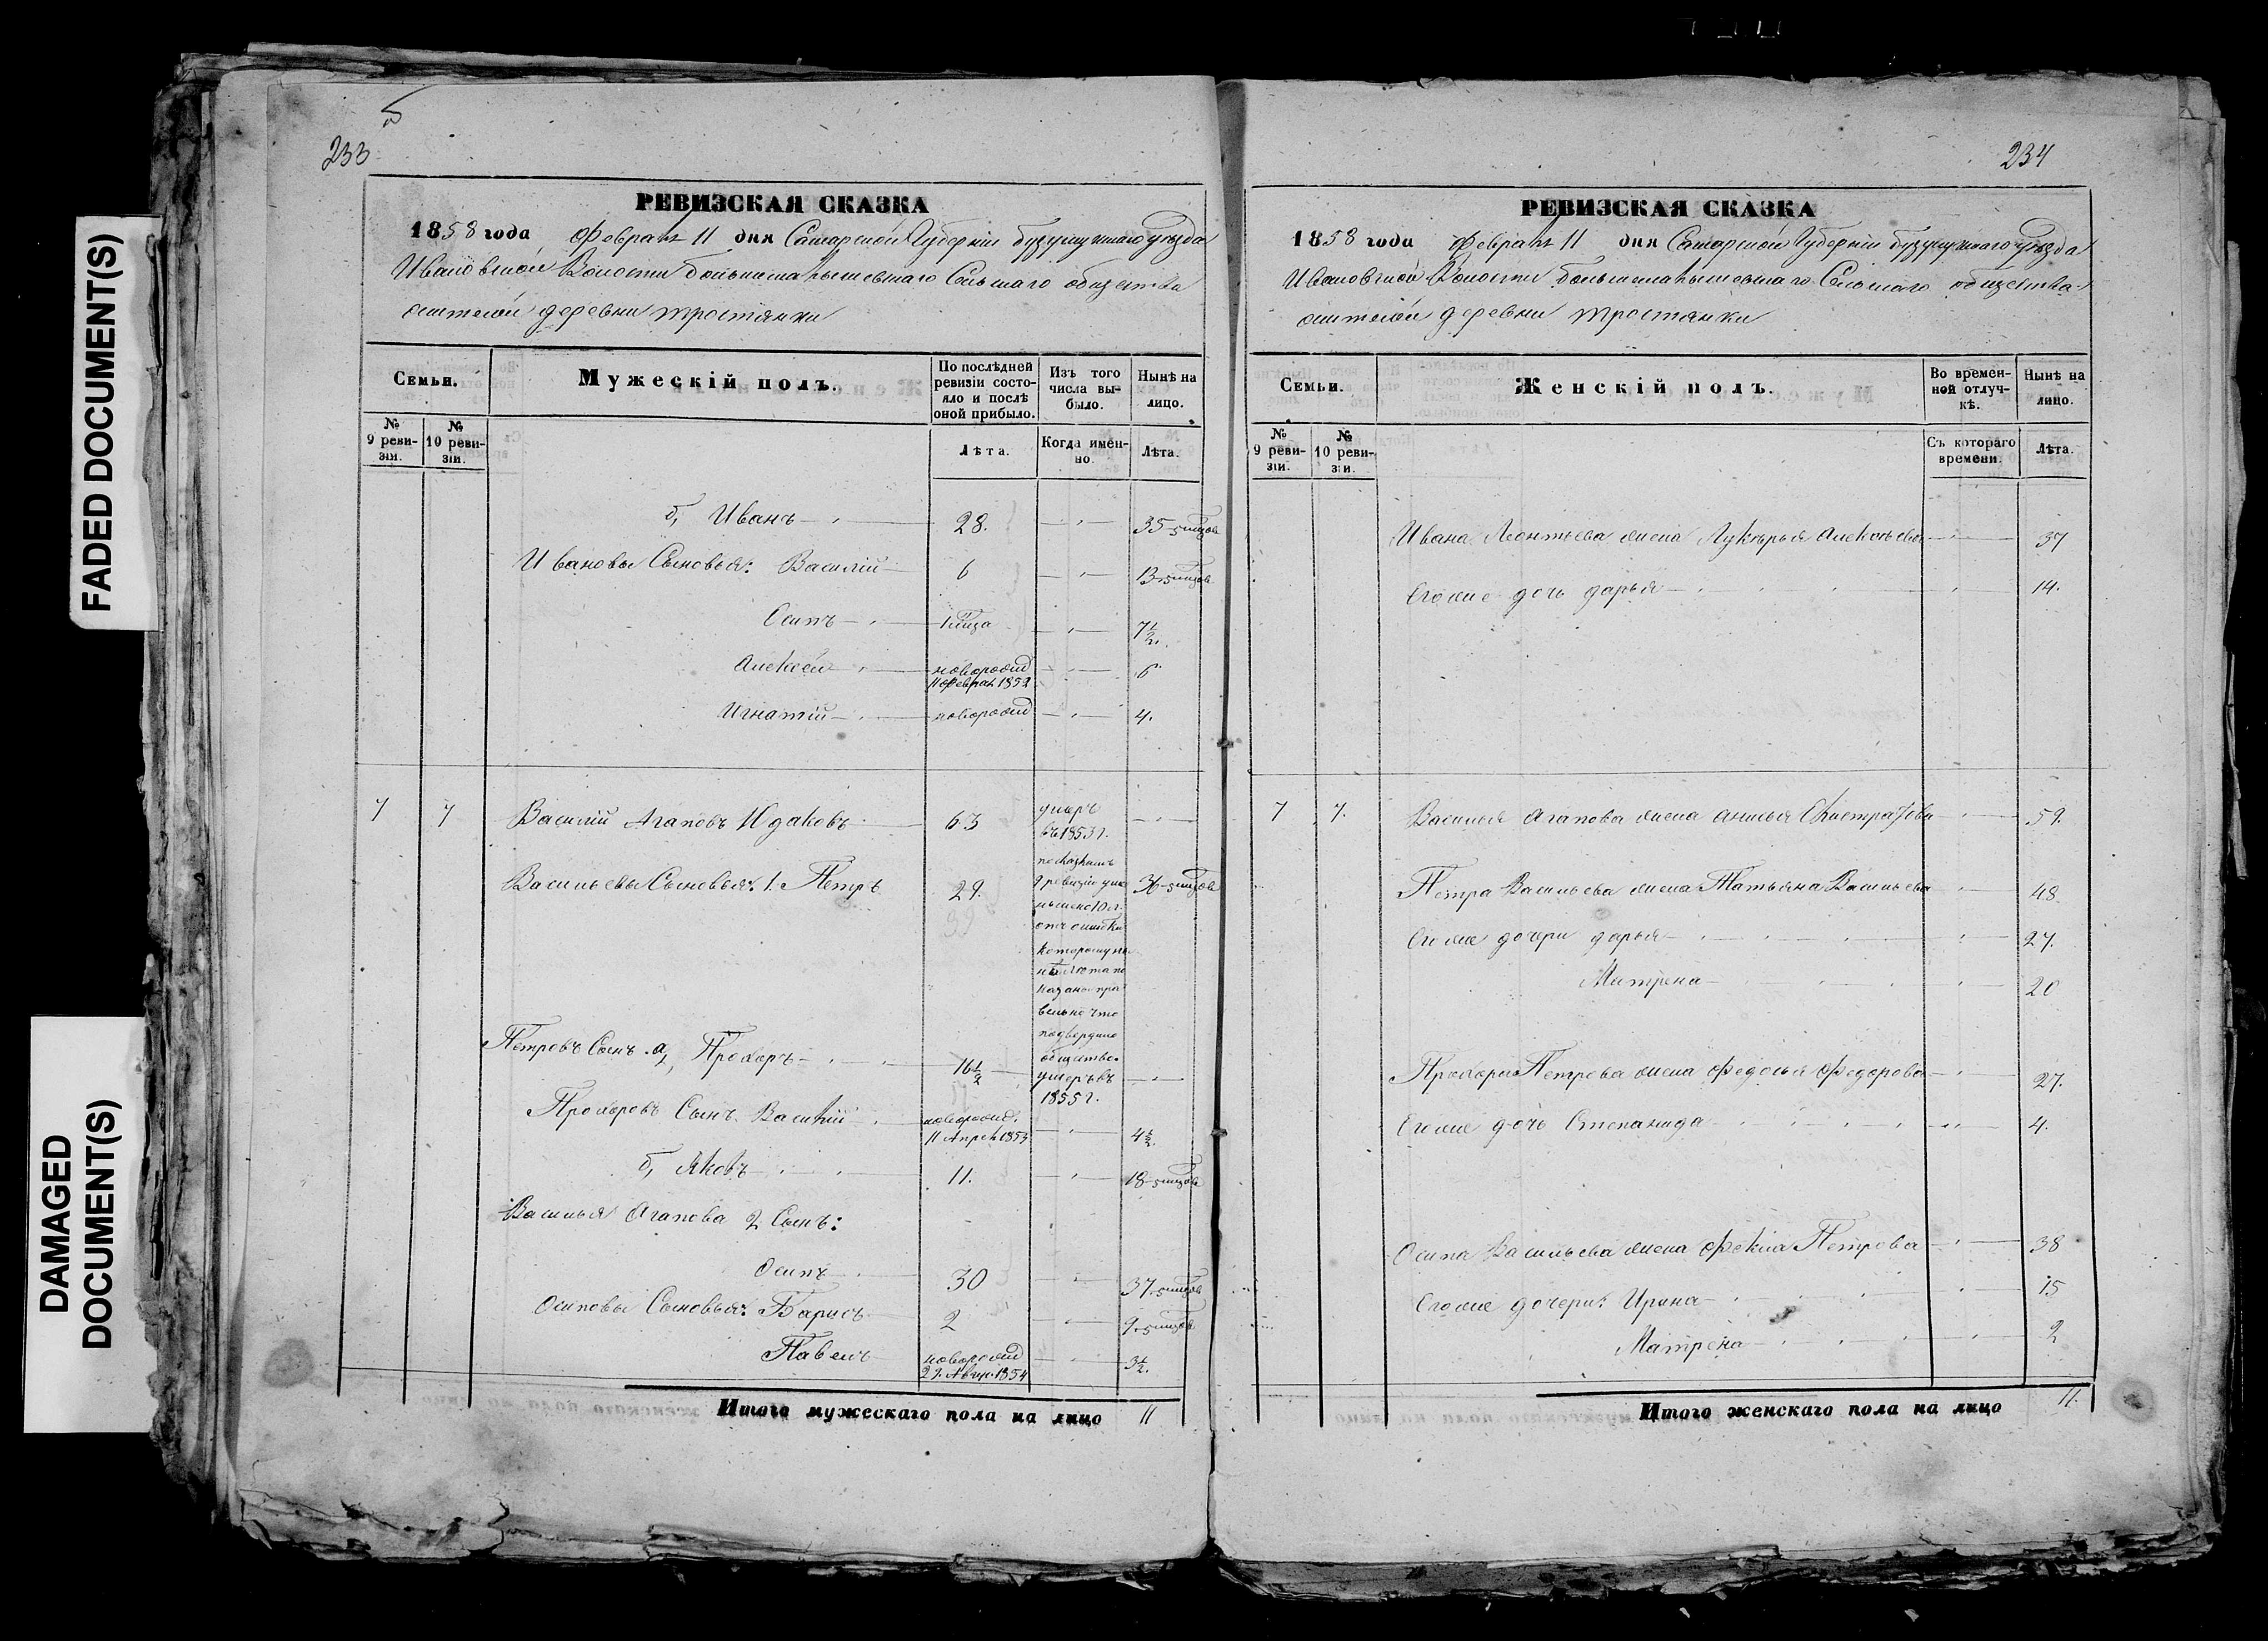 FADED DOCUMENT(S)
DAMAGED
DOCUMENT(S)
233
РЕВИЗСКАЯ СКАЗКА
1858 года Феврал 11 дня Самарской Губерніи бузулукскаго уезда
Ивановской Волости Сельскаго общества
деревни тростянки
Семьи.
Мужескій полъ.
По послѣдней ревизіи состояло и послѣ оной прибыло.
Изъ того числа выбыло.
Нынѣ на лицо.
№ 9 ревизіи.
№ 10 ревизіи.
Лѣта.
Когда именно.
Лѣта.
б, Иванъ 28. 35
Ивановы Сыновья: Василій 6 13
Осипъ 7½.
Алексей новорожд 11 Феврал 1852 6
Игнатій новорожд 4.
7 7 Василій Агаповъ Юдаковъ 63 умеръ въ 1853 г.
Васильевы Сыновья: 1. Петръ 29. 36
по сказкамъ
9 ревизіи
отъ ошибки
которому
казано пра
вельно что
подвердило
общество
Петровъ Сынъ. а, Прохоръ 16½ умеръ въ 1855 г.
Прохоровъ Сынъ Василій новорожд. 11 Апрел 1853 4½.
б, Яковъ 11. 18
Василья Агапова 2 Сынъ:
Осипъ 30 37
Осиповы Сыновья: Барисъ 2 9
Павелъ новорожд 29. Авгус 1854 3½.
Итого мужескаго пола на лицо 11
234
РЕВИЗСКАЯ СКАЗКА
1858 года Феврал 11 дня Самарской Губерніи бузулукскаго уезда
Ивановской Волости Сельскаго общества
деревни тростянки
Семьи.
Женскій полъ.
Во временной отлучкѣ.
Нынѣ на лицо.
№ 9 ревизіи.
№ 10 ревизіи.
Съ котораго времени.
Лѣта.
Ивана Леонтьева жена Лукерья Алексеева 37
Егоже дочь дарья 14.
7 7. Василья Агапова жена анисья 59.
Петра Васильева жена Татьяна Васильева 48
Егоже дочери дарья 27.
Матрена 20
Прохора Петрова жена Федосья Федорова 27.
Егоже дочь Степанида 4.
Осипа Васильева жена Фекла Петрова 38
Егоже дочери: Ирина 15
Матрена 2
Итого женскаго пола на лицо 11.